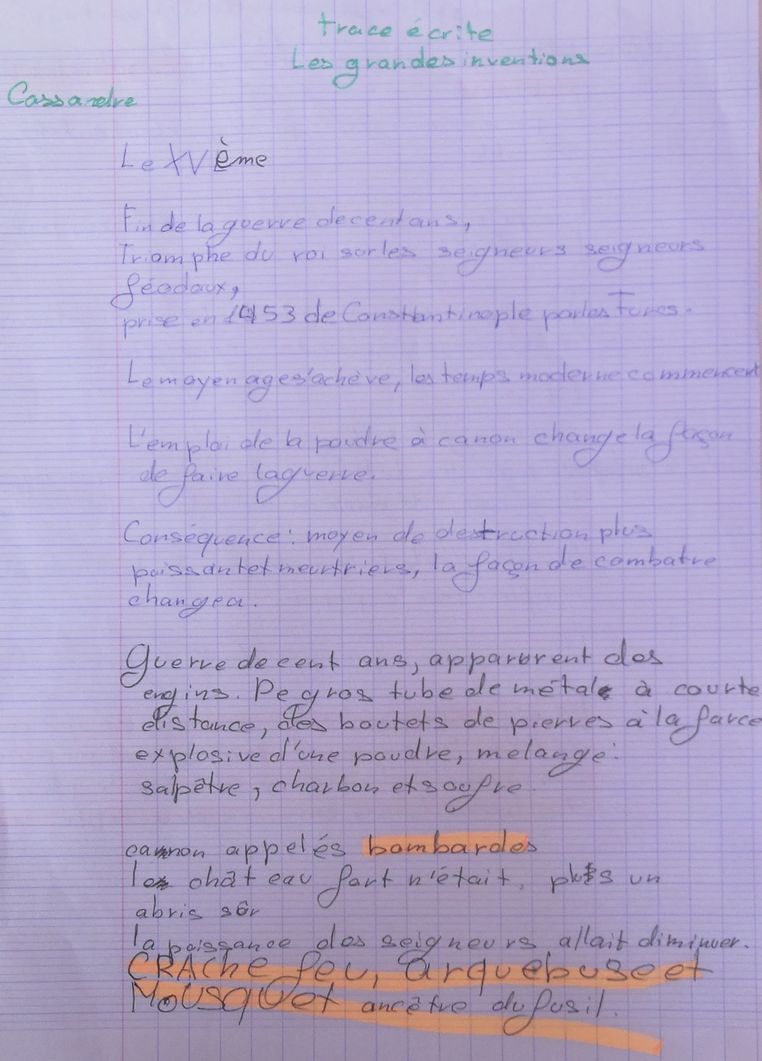 trace écrite
Les grandes inventions
Cassandre
Le XVème
Fin de la guerre de cent ans,
Triomphe du roi sur les seigneurs seigneurs
féodaux,
prise en 1453 de Constantinople par les Turcs.
Le moyen age s'achève, les temps moderne commencent
L'emploi de la poudre à canon change la façon
de faire la guerre.
Conséquence : moyen de destruction plus
puissant et meurtriers, la façon de combatre
changea.
Guerre de cent ans, apparurent des
engins. De gros tube de métal à courte
distance, des boulets de pierres à la force
explosive d'une poudre, melange:
salpêtre, charbon et soufre.
cannon appelés bombardes
les chât eau fort n'était, plus un
abris sûr
la puissance des seigneurs allait diminuer.
CRAChe feu, arquebuse et
MOUSQUet ancêtre du fusil.